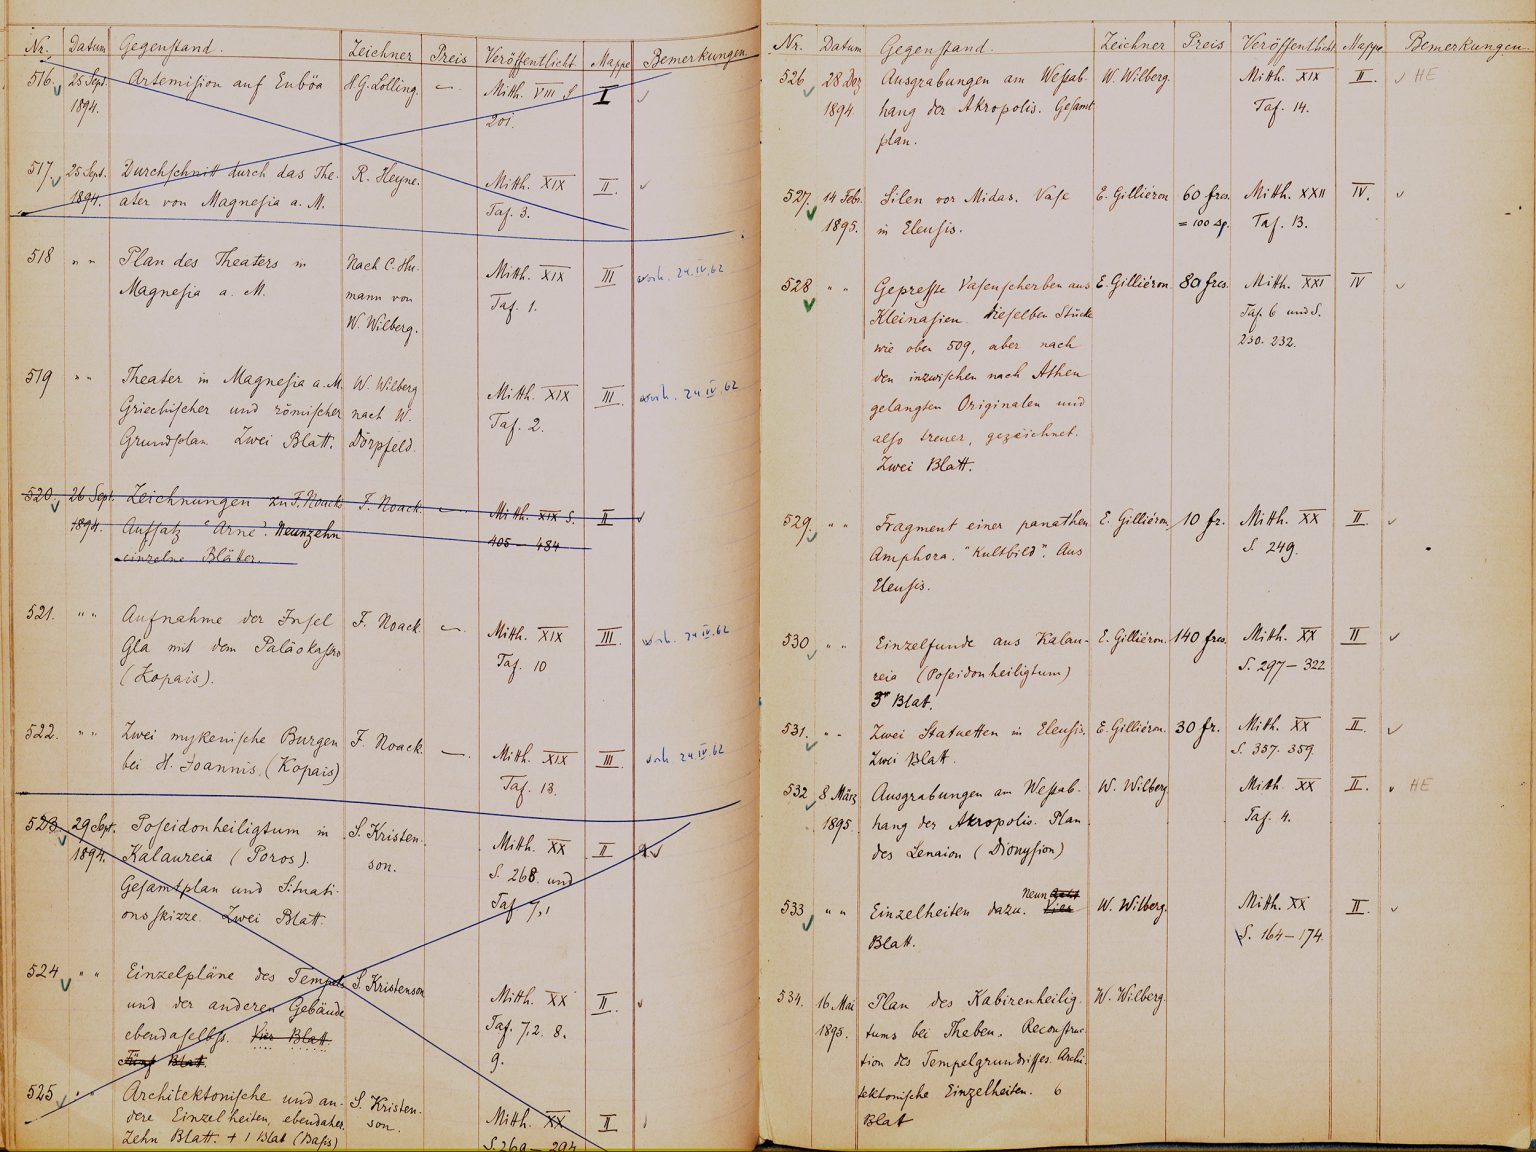 Nr. Datum Gegenstand. Zeichner Preis Veröffentlicht Mappe Bemerkungen.
516. 25 Sept. Artemision auf Euböa H.G. Lolling. — Mitth. VIII S. I
1894. 201.
517. 25 Sept. Durchschnitt durch das The- R. Heyne. Mitth. XIX II.
1894. ater von Magnesia a. M. Taf. 3.
518 " " Plan des Theaters in Nach C. Hu- Mitth. XIX III 24.IV.62
Magnesia a. M. mann von Taf. 1.
W. Wilberg.
519 " " Theater in Magnesia a. M. W. Wilberg Mitth. XIX III 24.IV.62
Griechischer und römischer nach W. Taf. 2.
Grundplan Zwei Blatt. Dörpfeld.
520. 26 Sept. Zeichnungen zu F. Noack F. Noack. — Mitth. XIX S. II
1894. Aufsatz "Arne". Neunzehn 405 – 484
einzelne Blätter.
521. " " Aufnahme der Insel F. Noack. — Mitth. XIX III. 24.IV.62
Gla mit dem Paläokastro Taf. 10
(Kopais).
522. " " Zwei mykenische Burgen F. Noack. — Mitth. XIX III. 24.IV.62
bei H. Joannis. (Kopais) Taf. 13.
523. 29 Sept. Poseidonheiligtum in S. Kristen- Mitth. XX II
1894. Kalaureia (Poros). son. S. 268. und
Gesamtplan und Situati- Taf 7,1
onsskizze. Zwei Blatt.
524 " " Einzelpläne des Tempels S. Kristenson Mitth. XX II.
und der anderen Gebäude Taf. 7,2. 8.
ebendaselbst. Vier Blatt. 9.
Fünf Blat.
525 " " Architektonische und an- S. Kristen- Mitth. XX II
dere Einzelheiten, ebendaher. son. S. 269 – 294
Zehn Blatt. + 1 Blat (Basis)
Nr. Datum Gegenstand. Zeichner Preis Veröffentlicht Mappe Bemerkungen.
526 28 Dez Ausgrabungen am Westab- W. Wilberg. Mitth. XIX II. HE
1894. hang der Akropolis. Gesamt Taf. 14.
plan.
527. 14 Febr. Silen vor Midas. Vase E. Gilliéron 60 frcs. Mitth. XXII IV.
1895. in Eleusis. = 100 Taf. 13.
528 " " Gepresste Vasenscherben aus E. Gilliéron. 80 frcs. Mitth. XXI IV
Kleinasien. Dieselben Stücke Taf. 6 und S.
wie oben 509, aber nach 230. 232.
den inzwischen nach Athen
gelangten Originalen und
also treuer, gezeichnet.
Zwei Blatt.
529. " " Fragment einer panathen E. Gilliéron, 10 fr. Mitth. XX II.
Amphora. "Kultbild". Aus S. 249.
Eleusis.
530 " " Einzelfunde aus Kalau- E. Gilliéron. 140 frcs. Mitth. XX II
reia (Poseidonheiligtum) S. 297 – 322
3 Blat.
531. " " Zwei Statuetten in Eleusis. E. Gilliéron. 30 fr. Mitth. XX II.
Zwei Blatt. S. 357. 359
532 8 März Ausgrabungen am Westab- W. Wilberg Mitth. XX II. HE
1895. hang der Akropolis. Plan Taf. 4.
des Lenaion (Dionysion)
533 " " Einzelheiten dazu. Neun Acht Vier W. Wilberg. Mitth. XX II.
Blatt. S. 164 – 174.
534. 16. Mai Plan des Kabirenheilig- W. Wilberg.
1895. tums bei Theben. Reconstruc-
tion des Tempelgrundrisses. Archi-
tektonische Einzelheiten. 6
Blat